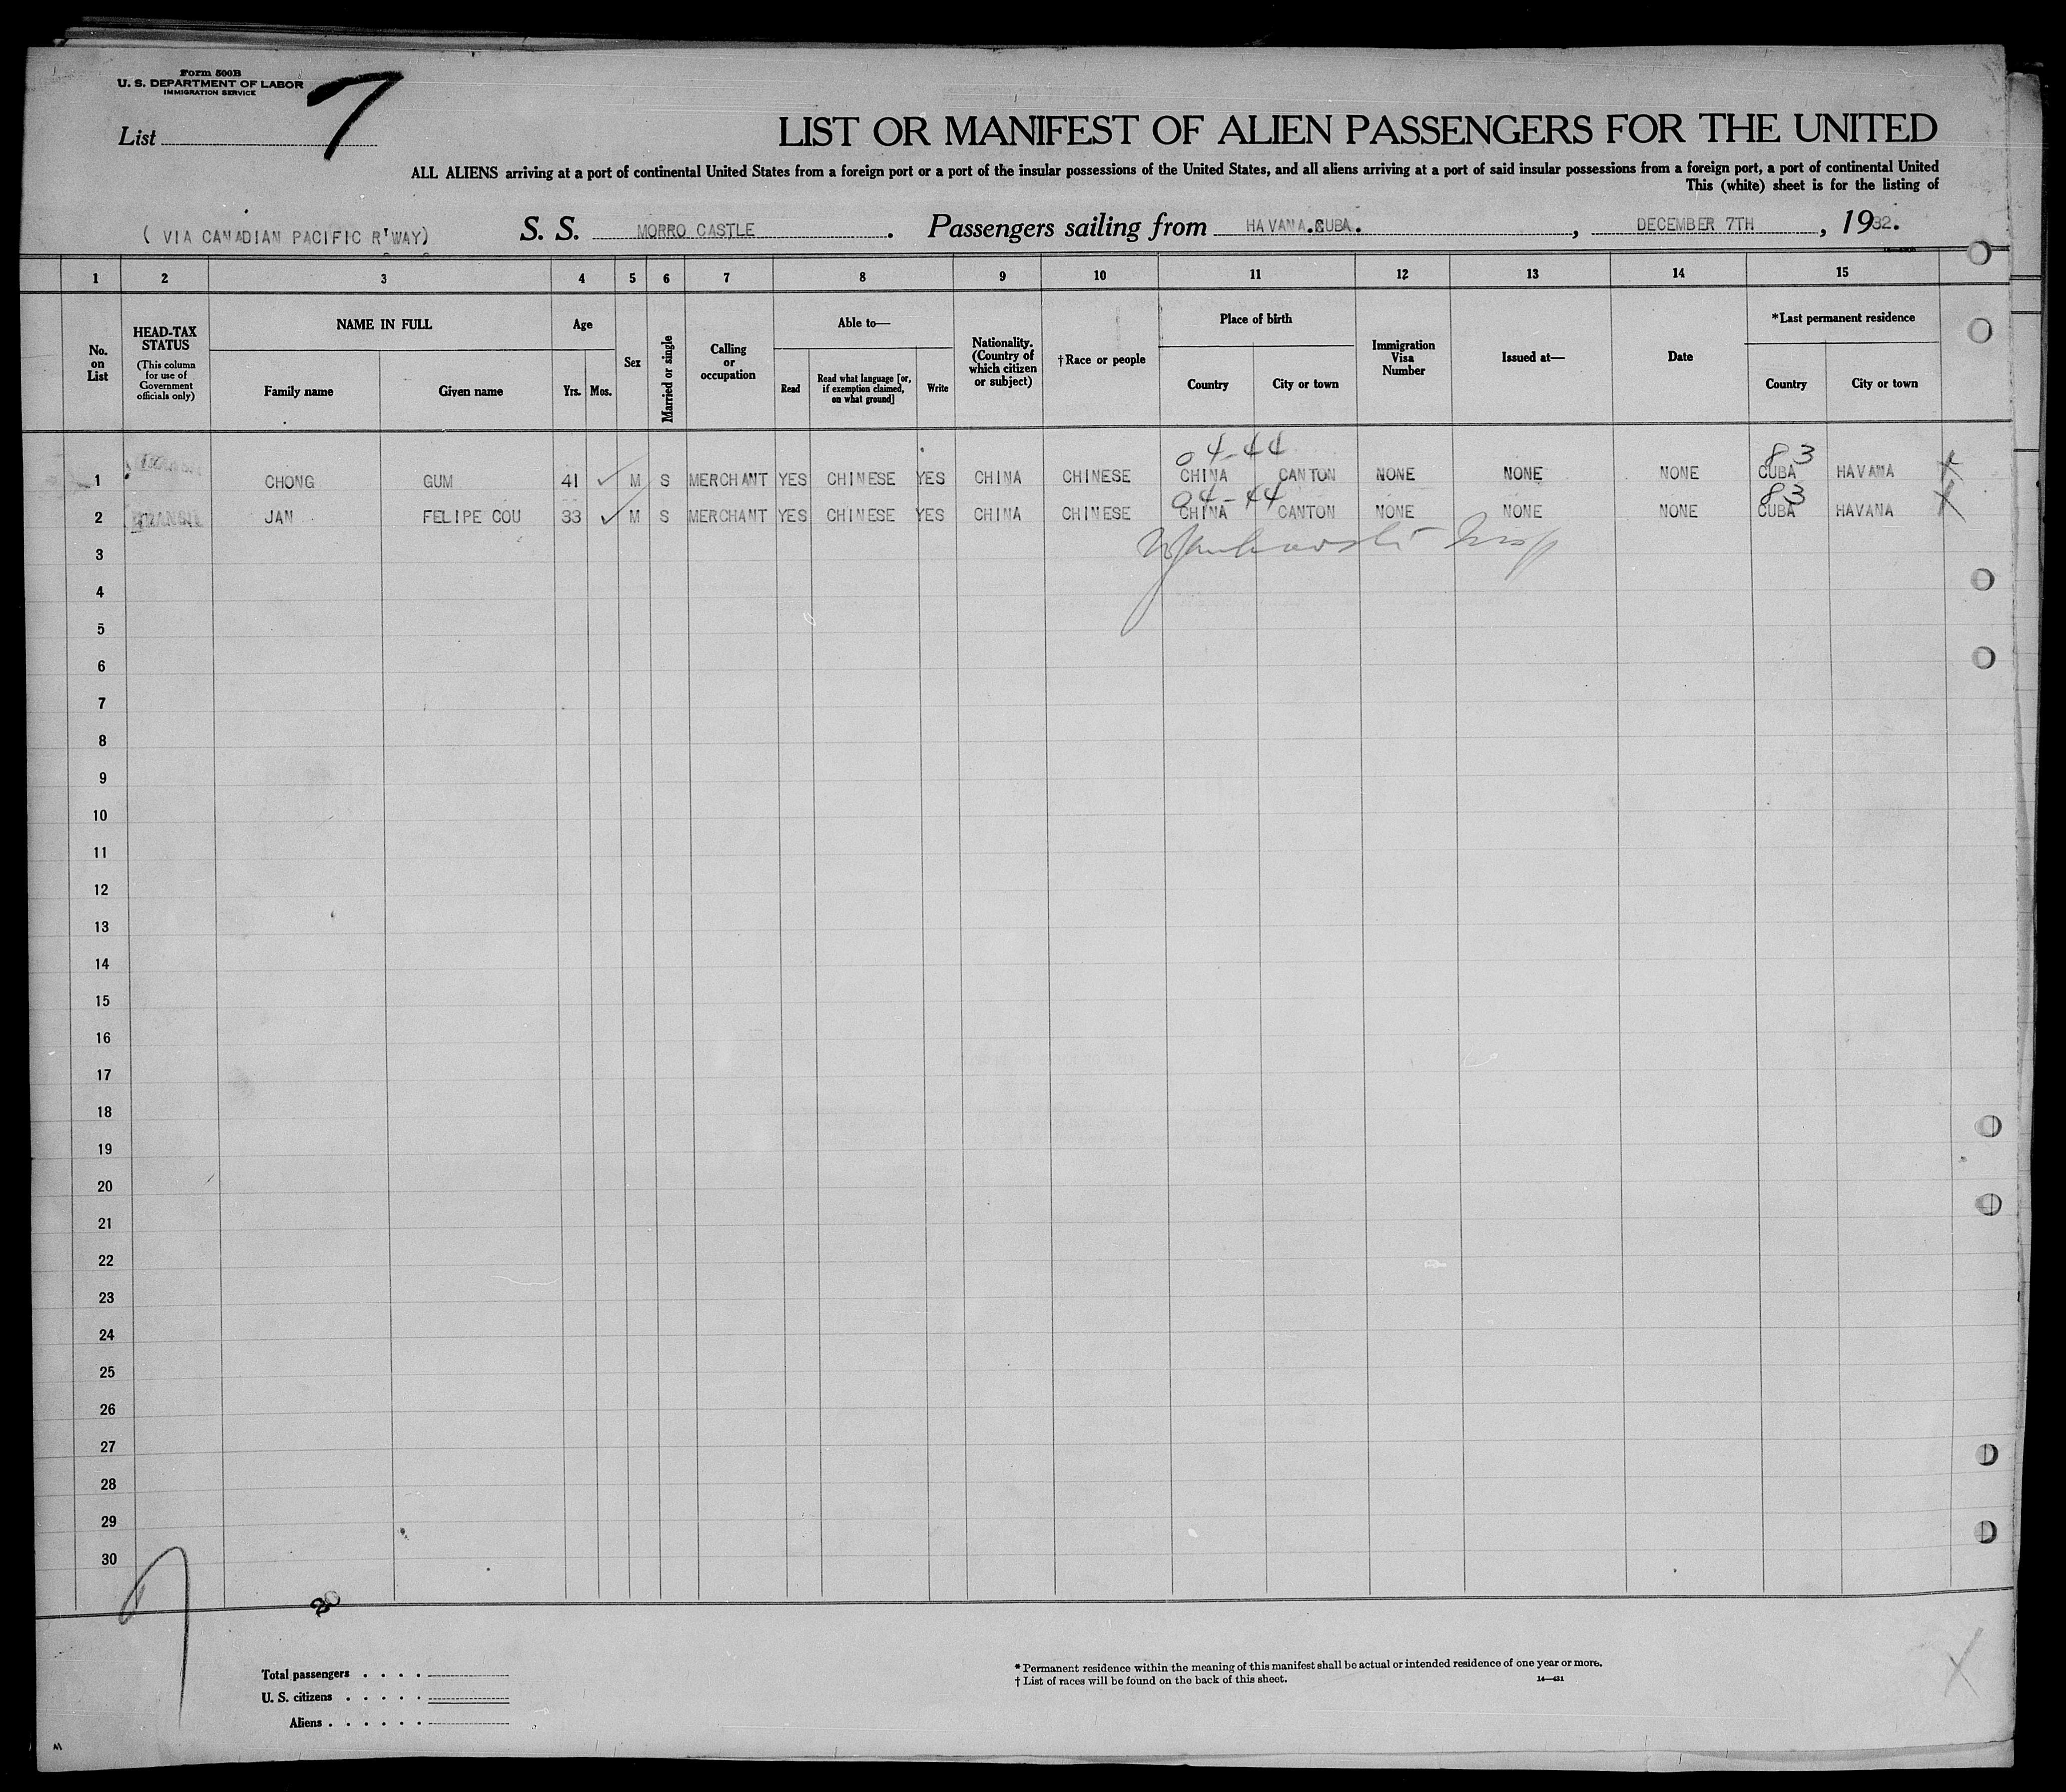 Form 500B
U. S. DEPARTMENT OF LABOR
IMMIGRATION SERVICE
List 7
LIST OR MANIFEST OF ALIEN PASSENGERS FOR THE UNITED
ALL ALIENS arriving at a port of continental United States from a foreign port or a port of the insular possessions of the United States, and all aliens arriving at a port of said insular possessions from a foreign port, a port of continental United
This (white) sheet is for the listing of
( VIA CANADIAN PACIFIC R'WAY) S. S. MORRO CASTLE. Passengers sailing from HAVANA.CUBA. , DECEMBER 7TH , 1932.
1 2 3 4 5 6 7 8 9 10 11 12 13 14 15
No. on List
HEAD-TAX STATUS
(This column for use of Government officials only)
NAME IN FULL
Family name
Given name
Age
Yrs. Mos.
Sex
Married or single
Calling or occupation
Able to—
Read
Read what language [or, if exemption claimed, on what ground]
Write
Nationality. (Country of which citizen or subject)
†Race or people
Place of birth
Country
City or town
Immigration Visa Number
Issued at—
Date
*Last permanent residence
Country
City or town
04-44 83
1 CHONG GUM 41 M S MERCHANT YES CHINESE YES CHINA CHINESE CHINA CANTON NONE NONE NONE CUBA HAVANA
04-44 83
2 TRANSIT JAN FELIPE COU 33 M S MERCHANT YES CHINESE YES CHINA CHINESE CHINA CANTON NONE NONE NONE CUBA HAVANA
3
4
5
6
7
8
9
10
11
12
13
14
15
16
17
18
19
20
21
22
23
24
25
26
27
28
29
30
20
Total passengers
U. S. citizens
Aliens
* Permanent residence within the meaning of this manifest shall be actual or intended residence of one year or more.
† List of races will be found on the back of this sheet. 14—431